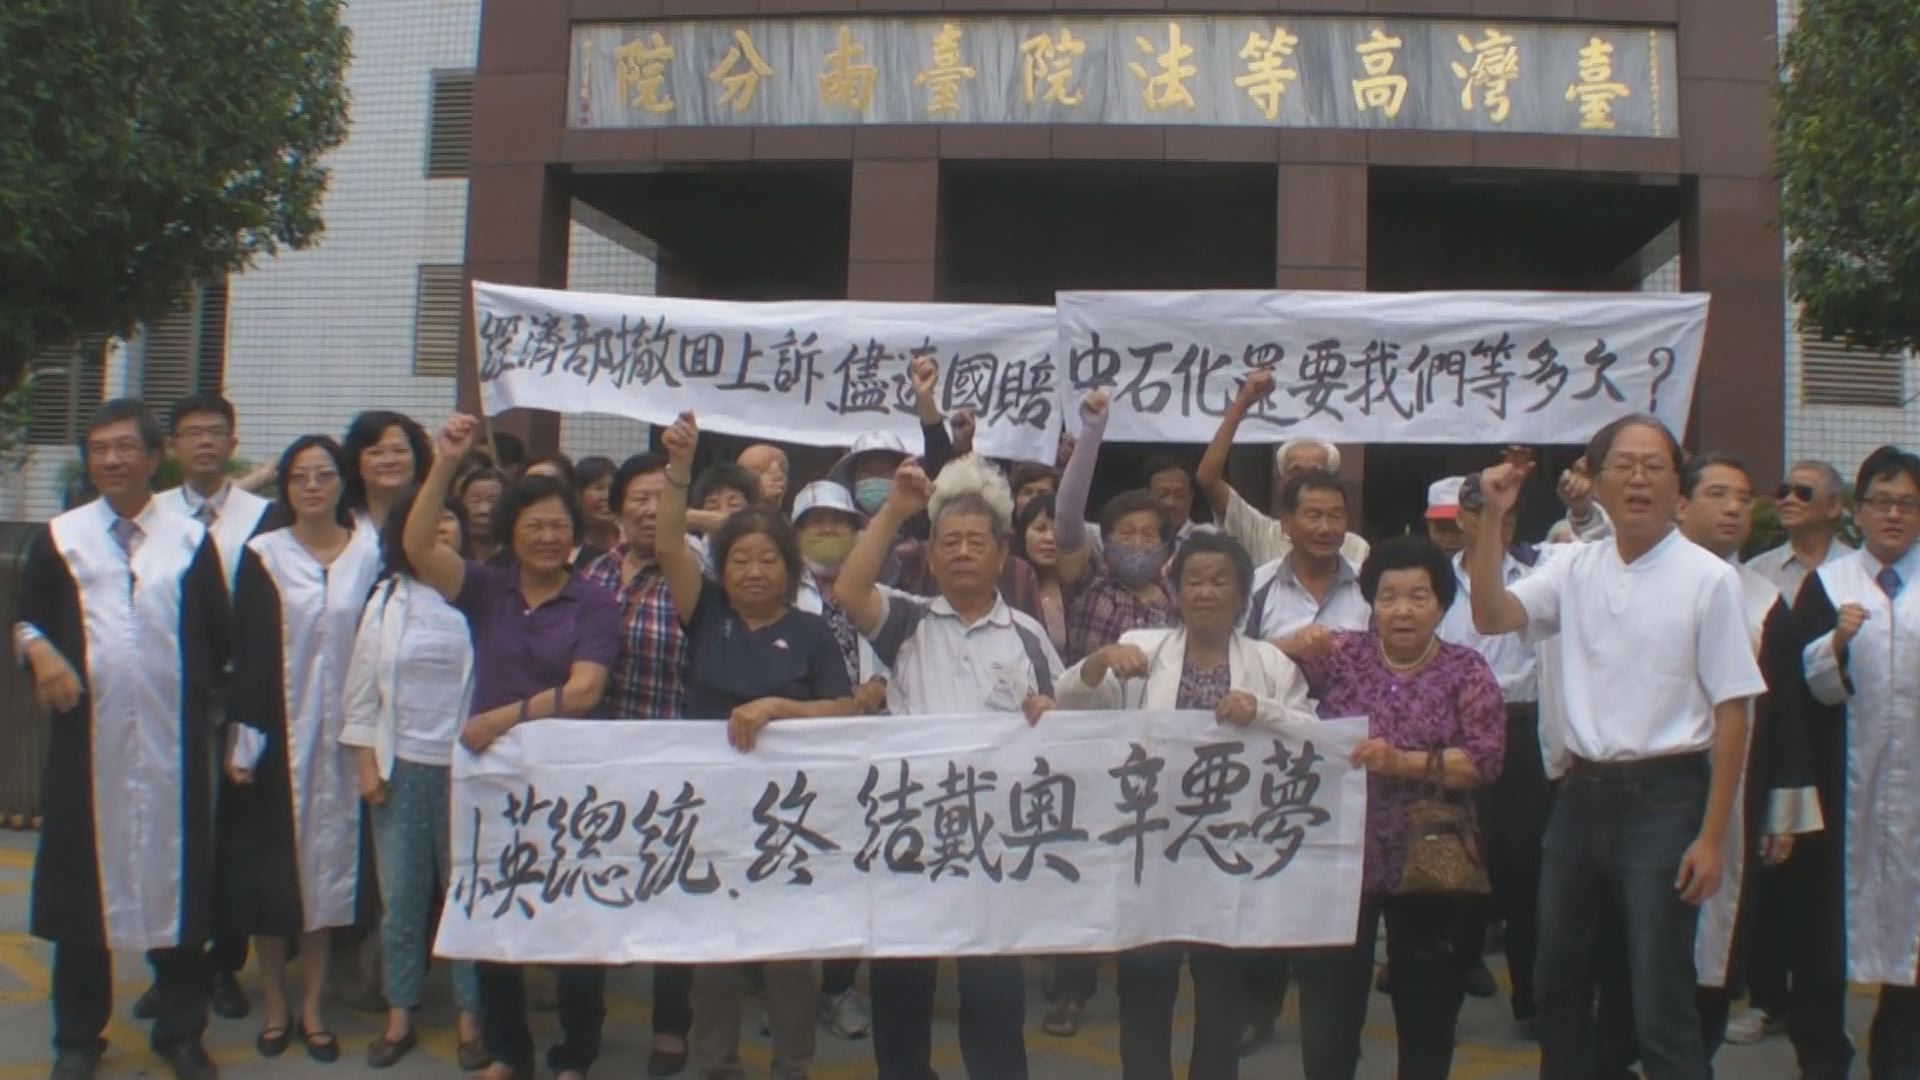 臺灣高等法院臺南分院
經濟部撤回上訴、儘速國賠
中石化還要我們等多久？
小英總統、終結戴奧辛惡夢